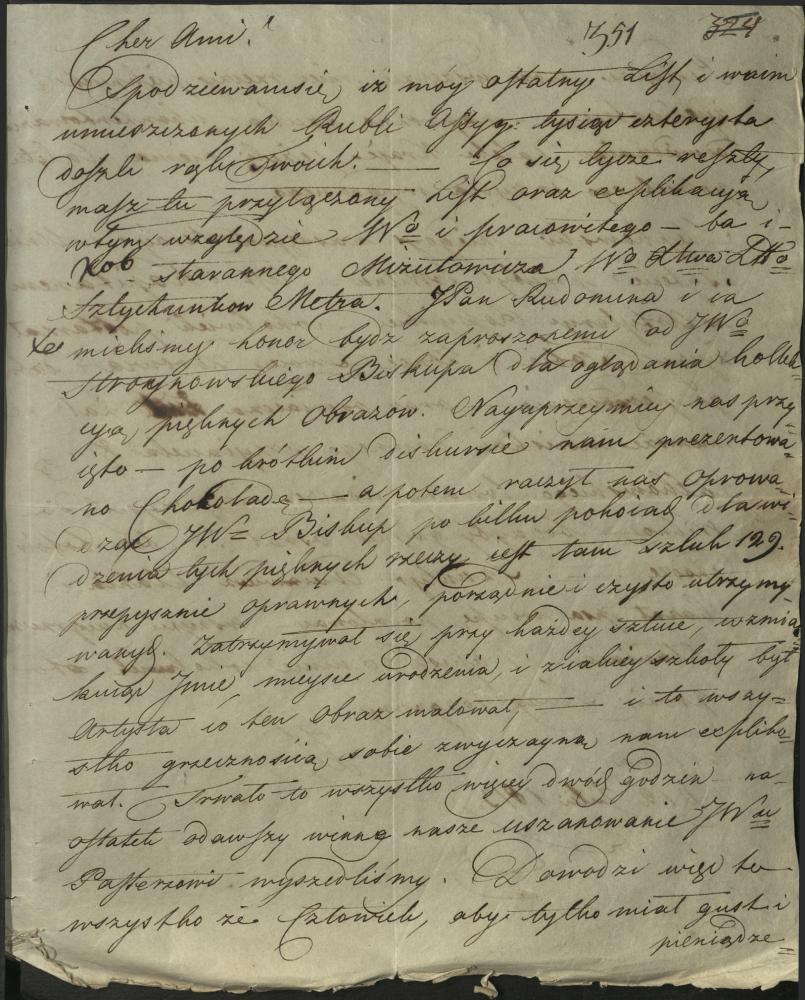 351 324
Cher Ami!
Spodziewamsię iż móy ostatny List, i w nim
umieszczonych Rubli Assyg: tysiąc czterysta
doszli rąk Twoich. — Co się tycze reszty,
masz tu przyłączony List oraz explikacyą
wtym względzie Wo i pracowitego — ba i -
starannego Mizulowicza Wo
Sztychunkow Metra. JPan Rudomina i ia
mieliśmy honor bydz zaproszonemi od JWo
Stroynowskiego Biskupa dla oglądania kollek=
cyą pięknych Obrazów. Nayuprzeymiey nas przy=
ięto — po krótkim diskursie nam prezentowa=
no Chokoladę — a potem raczył nas oprowa=
dzać JW= Biskup po kilku pokoiach dla wi=
dzenia tych pięknych rzeczy, iest tam sztuk 129.
przepysznie oprawnych, porządnie i czysto utrzymy=
wanych. Zatrzymywał się przy każdey sztuce, wzmia=
kuiąc Jmie, mieysce urodzenia, i z iakiey szkoły był
Artysta co ten Obraz malował, — i to wszy=
stko grzecznoscią sobie zwyczayną nam expliko=
wał. Trwało to wszystko więcey dwóch godzin na=
ostatek odawszy winne nasze uszanowanie JWmu
Pasterzowi wyszedliśmy. Dowodzi więc to
wszystko że Człowiek, aby tylko miał gust i
pieniądze